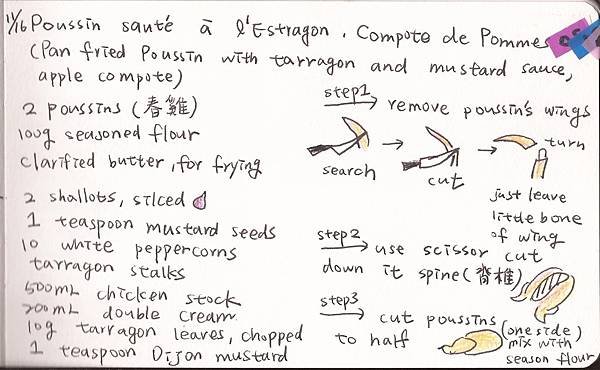 11/16 Poussin sauté à l'Estragon. Compote de Pommes
(Pan fried Poussin with tarragon and mustard sauce,
apple compote)
2 poussins (春雞)
100g seasoned flour
clarified butter, for frying
2 shallots, silced
1 teaspoon mustard seeds
10 white peppercorns
tarragon stalks
500mL chicken stock
200mL double cream
10g tarragon leaves, chopped
1 teaspoon Dijon mustard
step1
remove poussin's wings
search
cut
turn
just leave
little bone
of wing
step2
use scissor cut
down it spine (脊椎)
step3
cut poussins
to half
(one side)
mix with
season flour